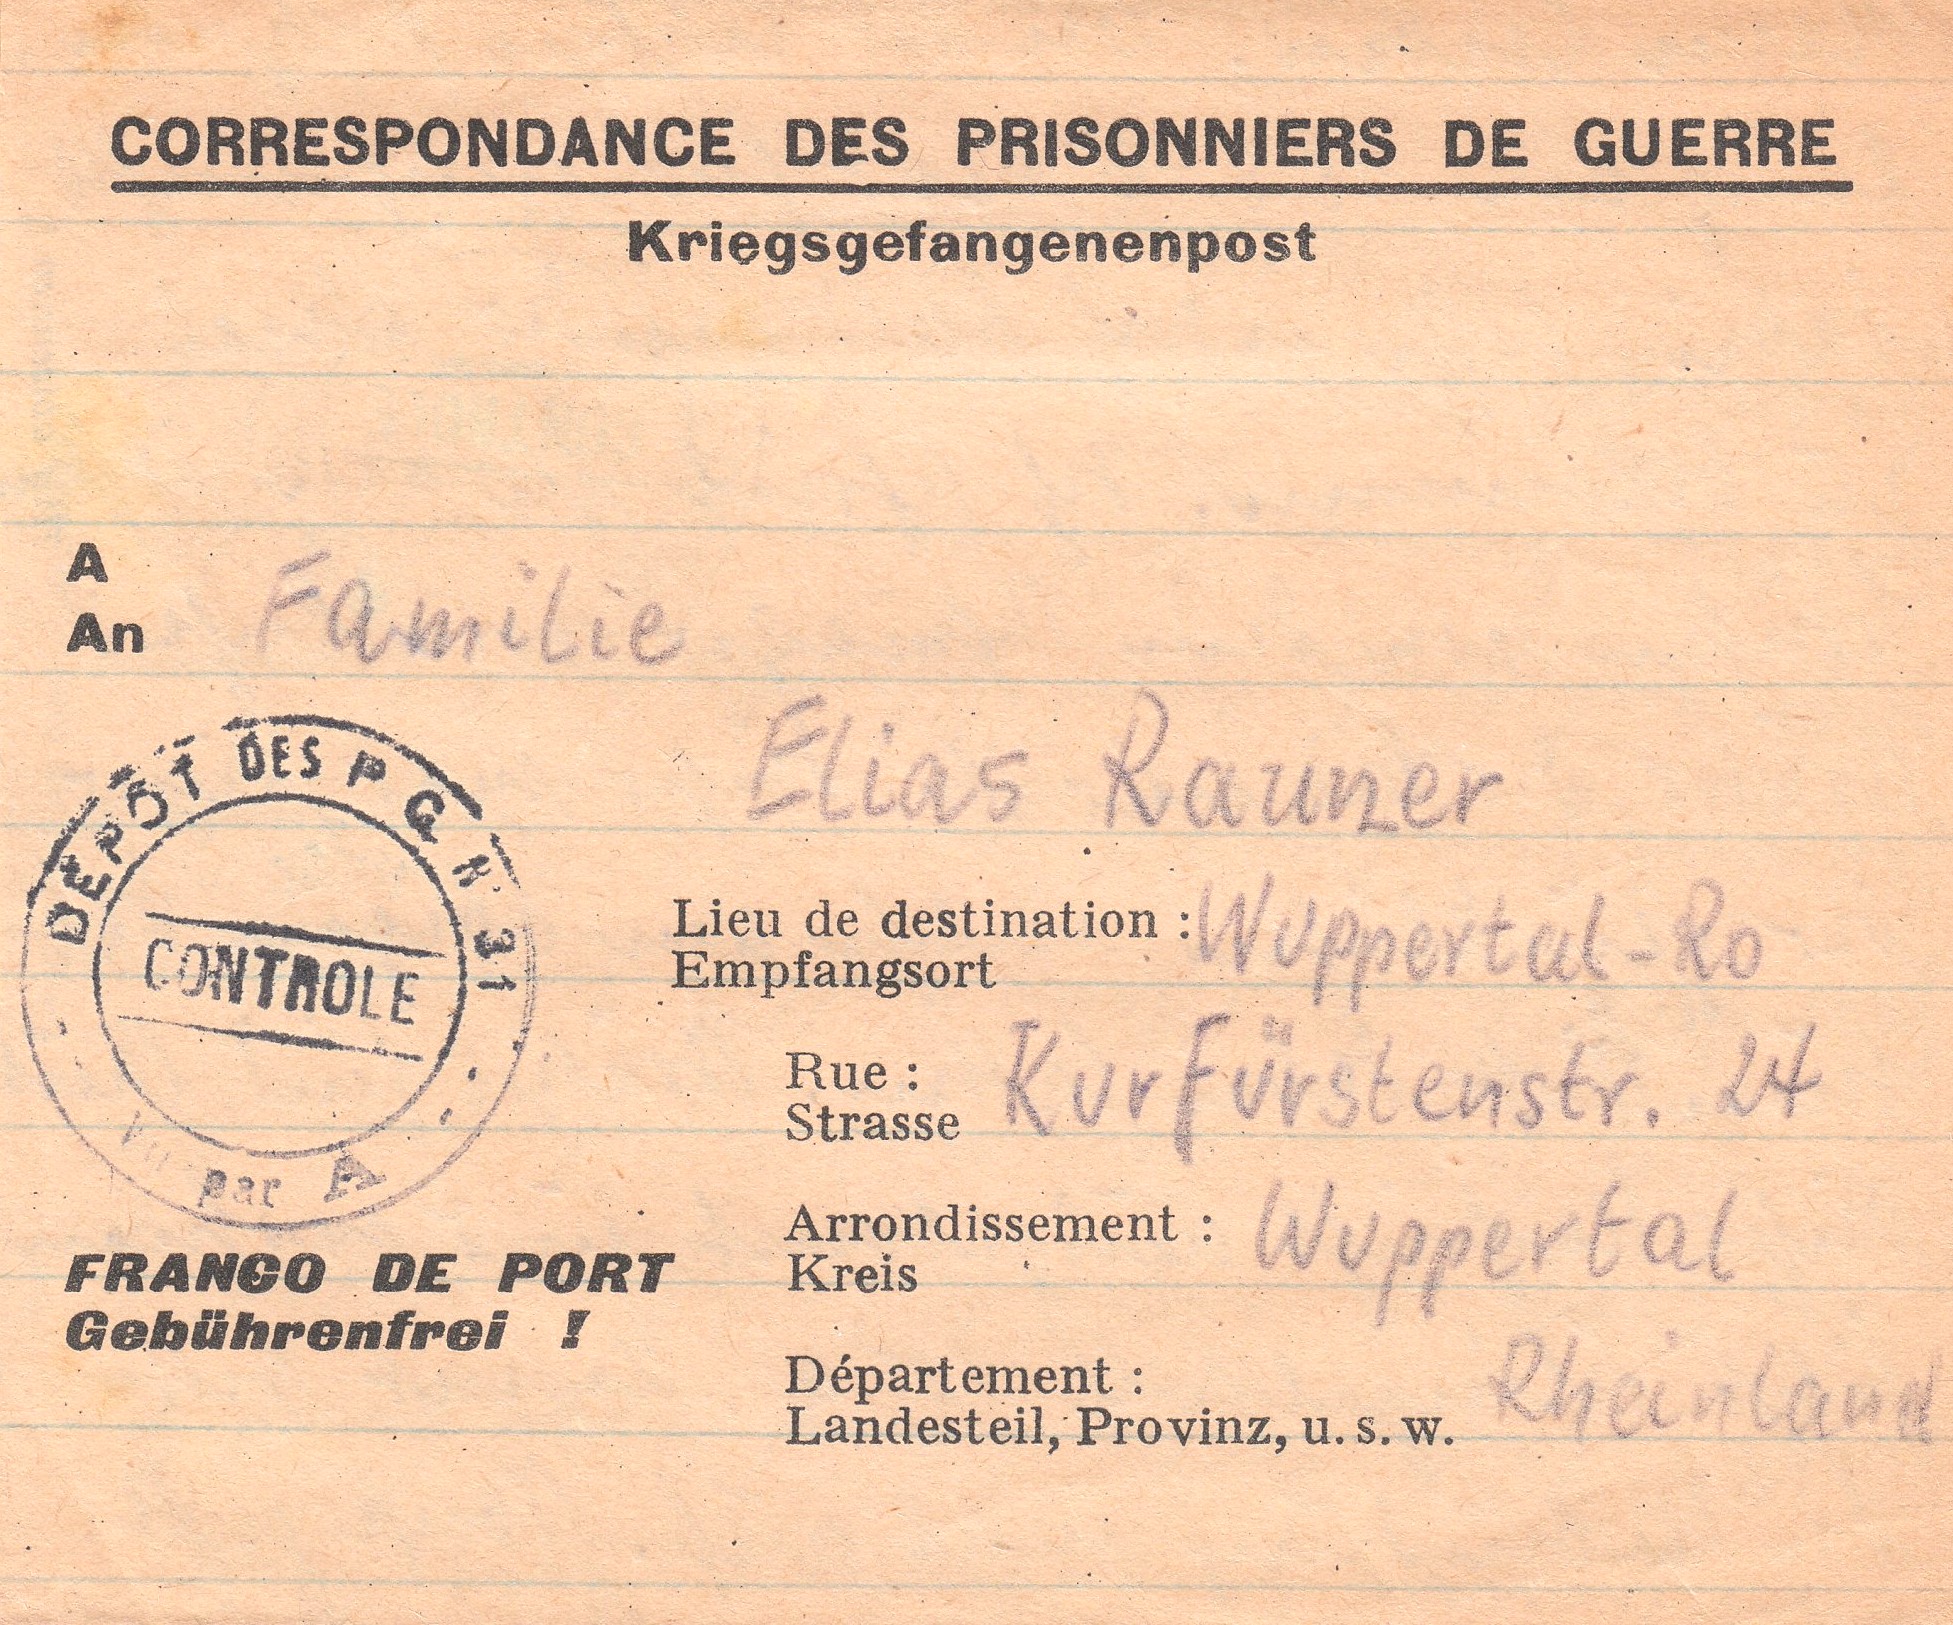 CORRESPONDANCE DES PRISONNIERS DE GUERRE
Kriegsgefangenenpost
A
An Familie
Elias Rauner
DÉPÔT DES P G N° 31
CONTROLE
par A
Lieu de destination : Wuppertal-Ro
Empfangsort
Rue : Kurfürstenstr. 24
Strasse
Arrondissement : Wuppertal
Kreis
FRANCO DE PORT
Gebührenfrei !
Département : Rheinland
Landesteil, Provinz, u. s. w.